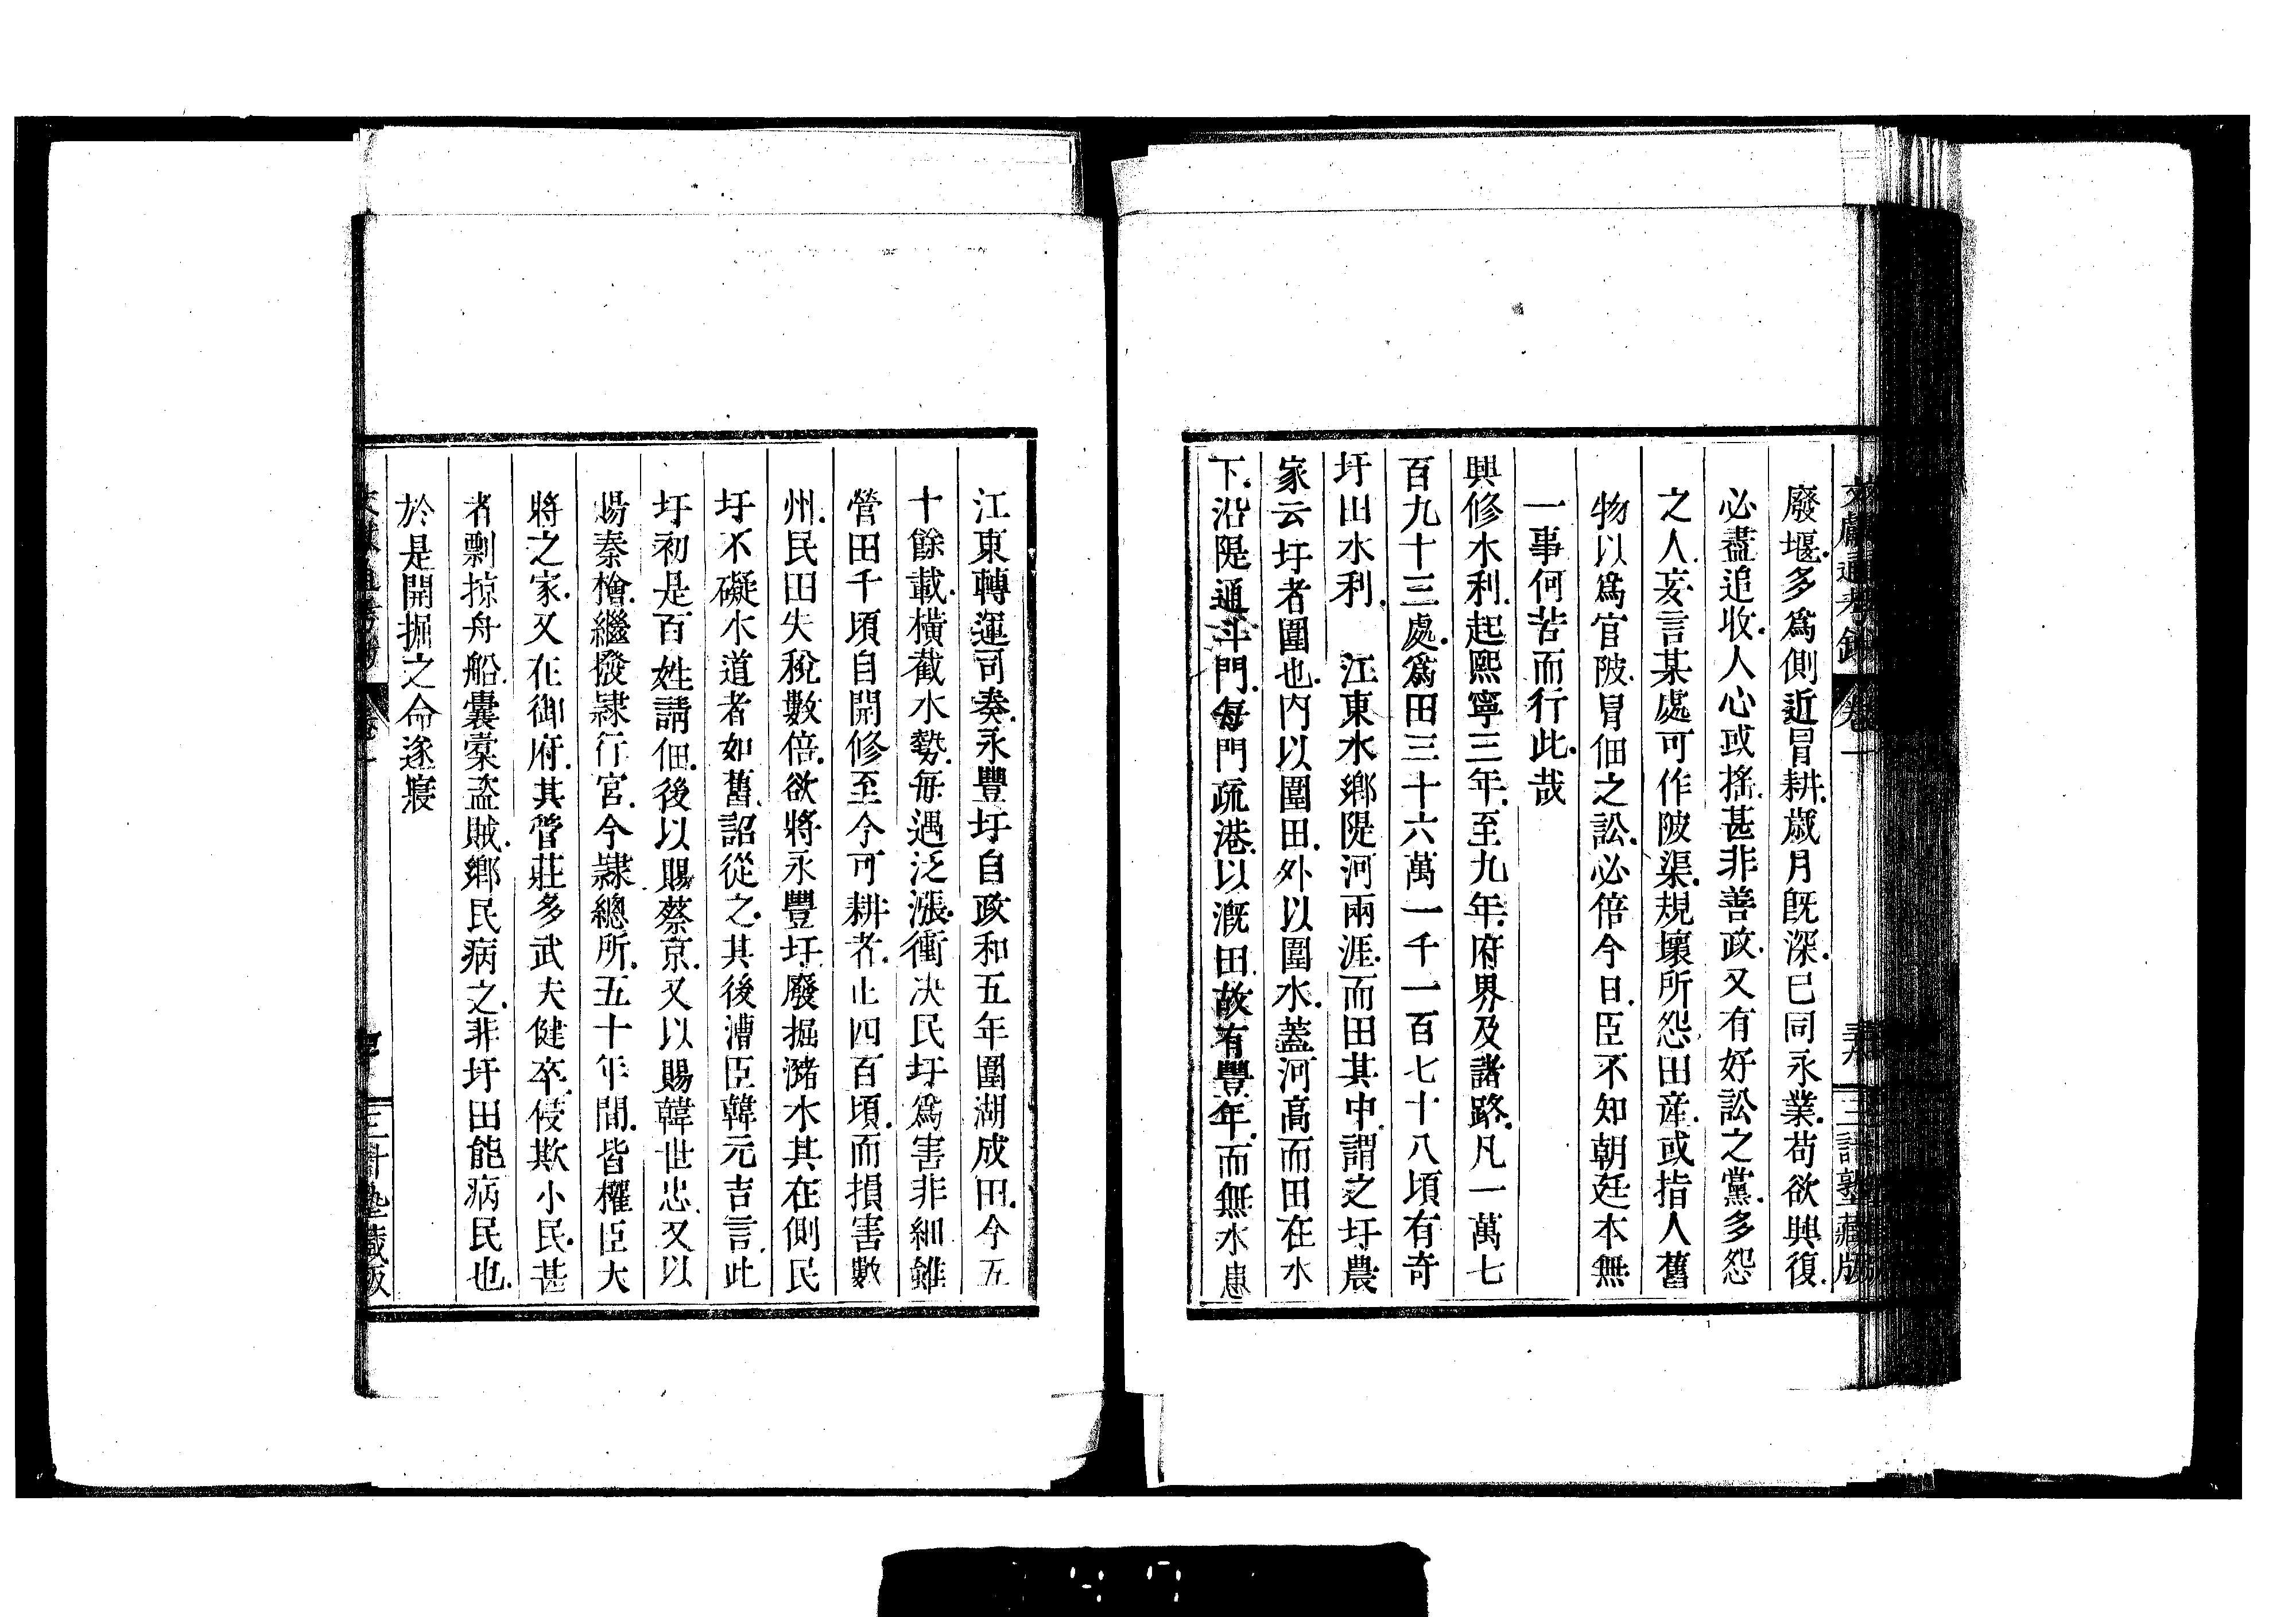 文獻通考鈔 卷一 三訂塾藏版
廢堰多爲側近冒耕歲月旣深已同永業苟欲興復
必盡追收人心或搖甚非善政又有好訟之黨多怨
之人妄言某處可作陂渠規壞所怨田產或指人舊
物以爲官陂冒佃之訟必倍今日臣不知朝廷本無
一事何苦而行此哉
興修水利起熙寧三年至九年府界及諸路凡一萬七
百九十三處爲田三十六萬一千一百七十八頃有奇
圩田水利 江東水鄉隄河兩涯而田其中謂之圩農
家云圩者圍也内以圍田外以圍水蓋河高而田在水
下沿隄通斗門每門疏港以漑田故有豐年而無水患
江東轉運司奏永豐圩自政和五年圍湖成田今五
十餘載橫截水勢每遇泛漲衝决民圩爲害非細雖
營田千頃自開修至今可耕者止四百頃而損害數
州民田失稅數倍欲將永豐圩廢掘瀦水其在側民
圩不礙水道者如舊詔從之其後漕臣韓元吉言此
圩初是百姓請佃後以賜蔡京又以賜韓世忠又以
賜秦檜繼撥隷行宮今隷總所五十年間皆權臣大
將之家又在御府其管莊多武夫健卒侵欺小民甚
者剽掠舟船囊橐盜賊鄉民病之非圩田能病民也
於是開掘之命遂寢
卷一 三訂塾藏版